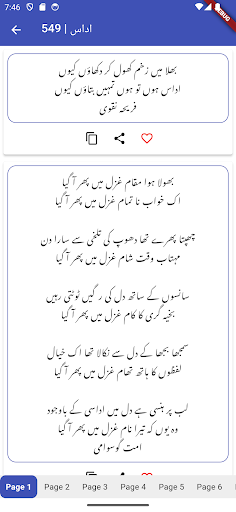 7:46
DEBUG
اداس | 549
بھلا میں زخم کھول کر دکھاؤں کیوں
اداس ہوں تو ہوں تمہیں بتاؤں کیوں
فریحہ نقوی
بھولا ہوا مقام غزل میں پھر آ گیا
اک خواب نا تمام غزل میں پھر آ گیا
چھپتا پھرے تھا دھوپ کی تلخی سے سارا دن
مہتاب وقت شام غزل میں پھر آ گیا
سانسوں کے ساتھ دل کی رگیں ٹوٹتی رہیں
بخیہ گری کا کام غزل میں پھر آ گیا
سمجھا بجھا کے دل سے نکالا تھا اک خیال
لفظوں کا ہاتھ تھام غزل میں پھر آ گیا
لب پر ہنسی ہے دل میں اداسی کے باوجود
وہ یوں کہ تیرا نام غزل میں پھر آ گیا
امت گوسوامی
Page 1 Page 2 Page 3 Page 4 Page 5 Page 6